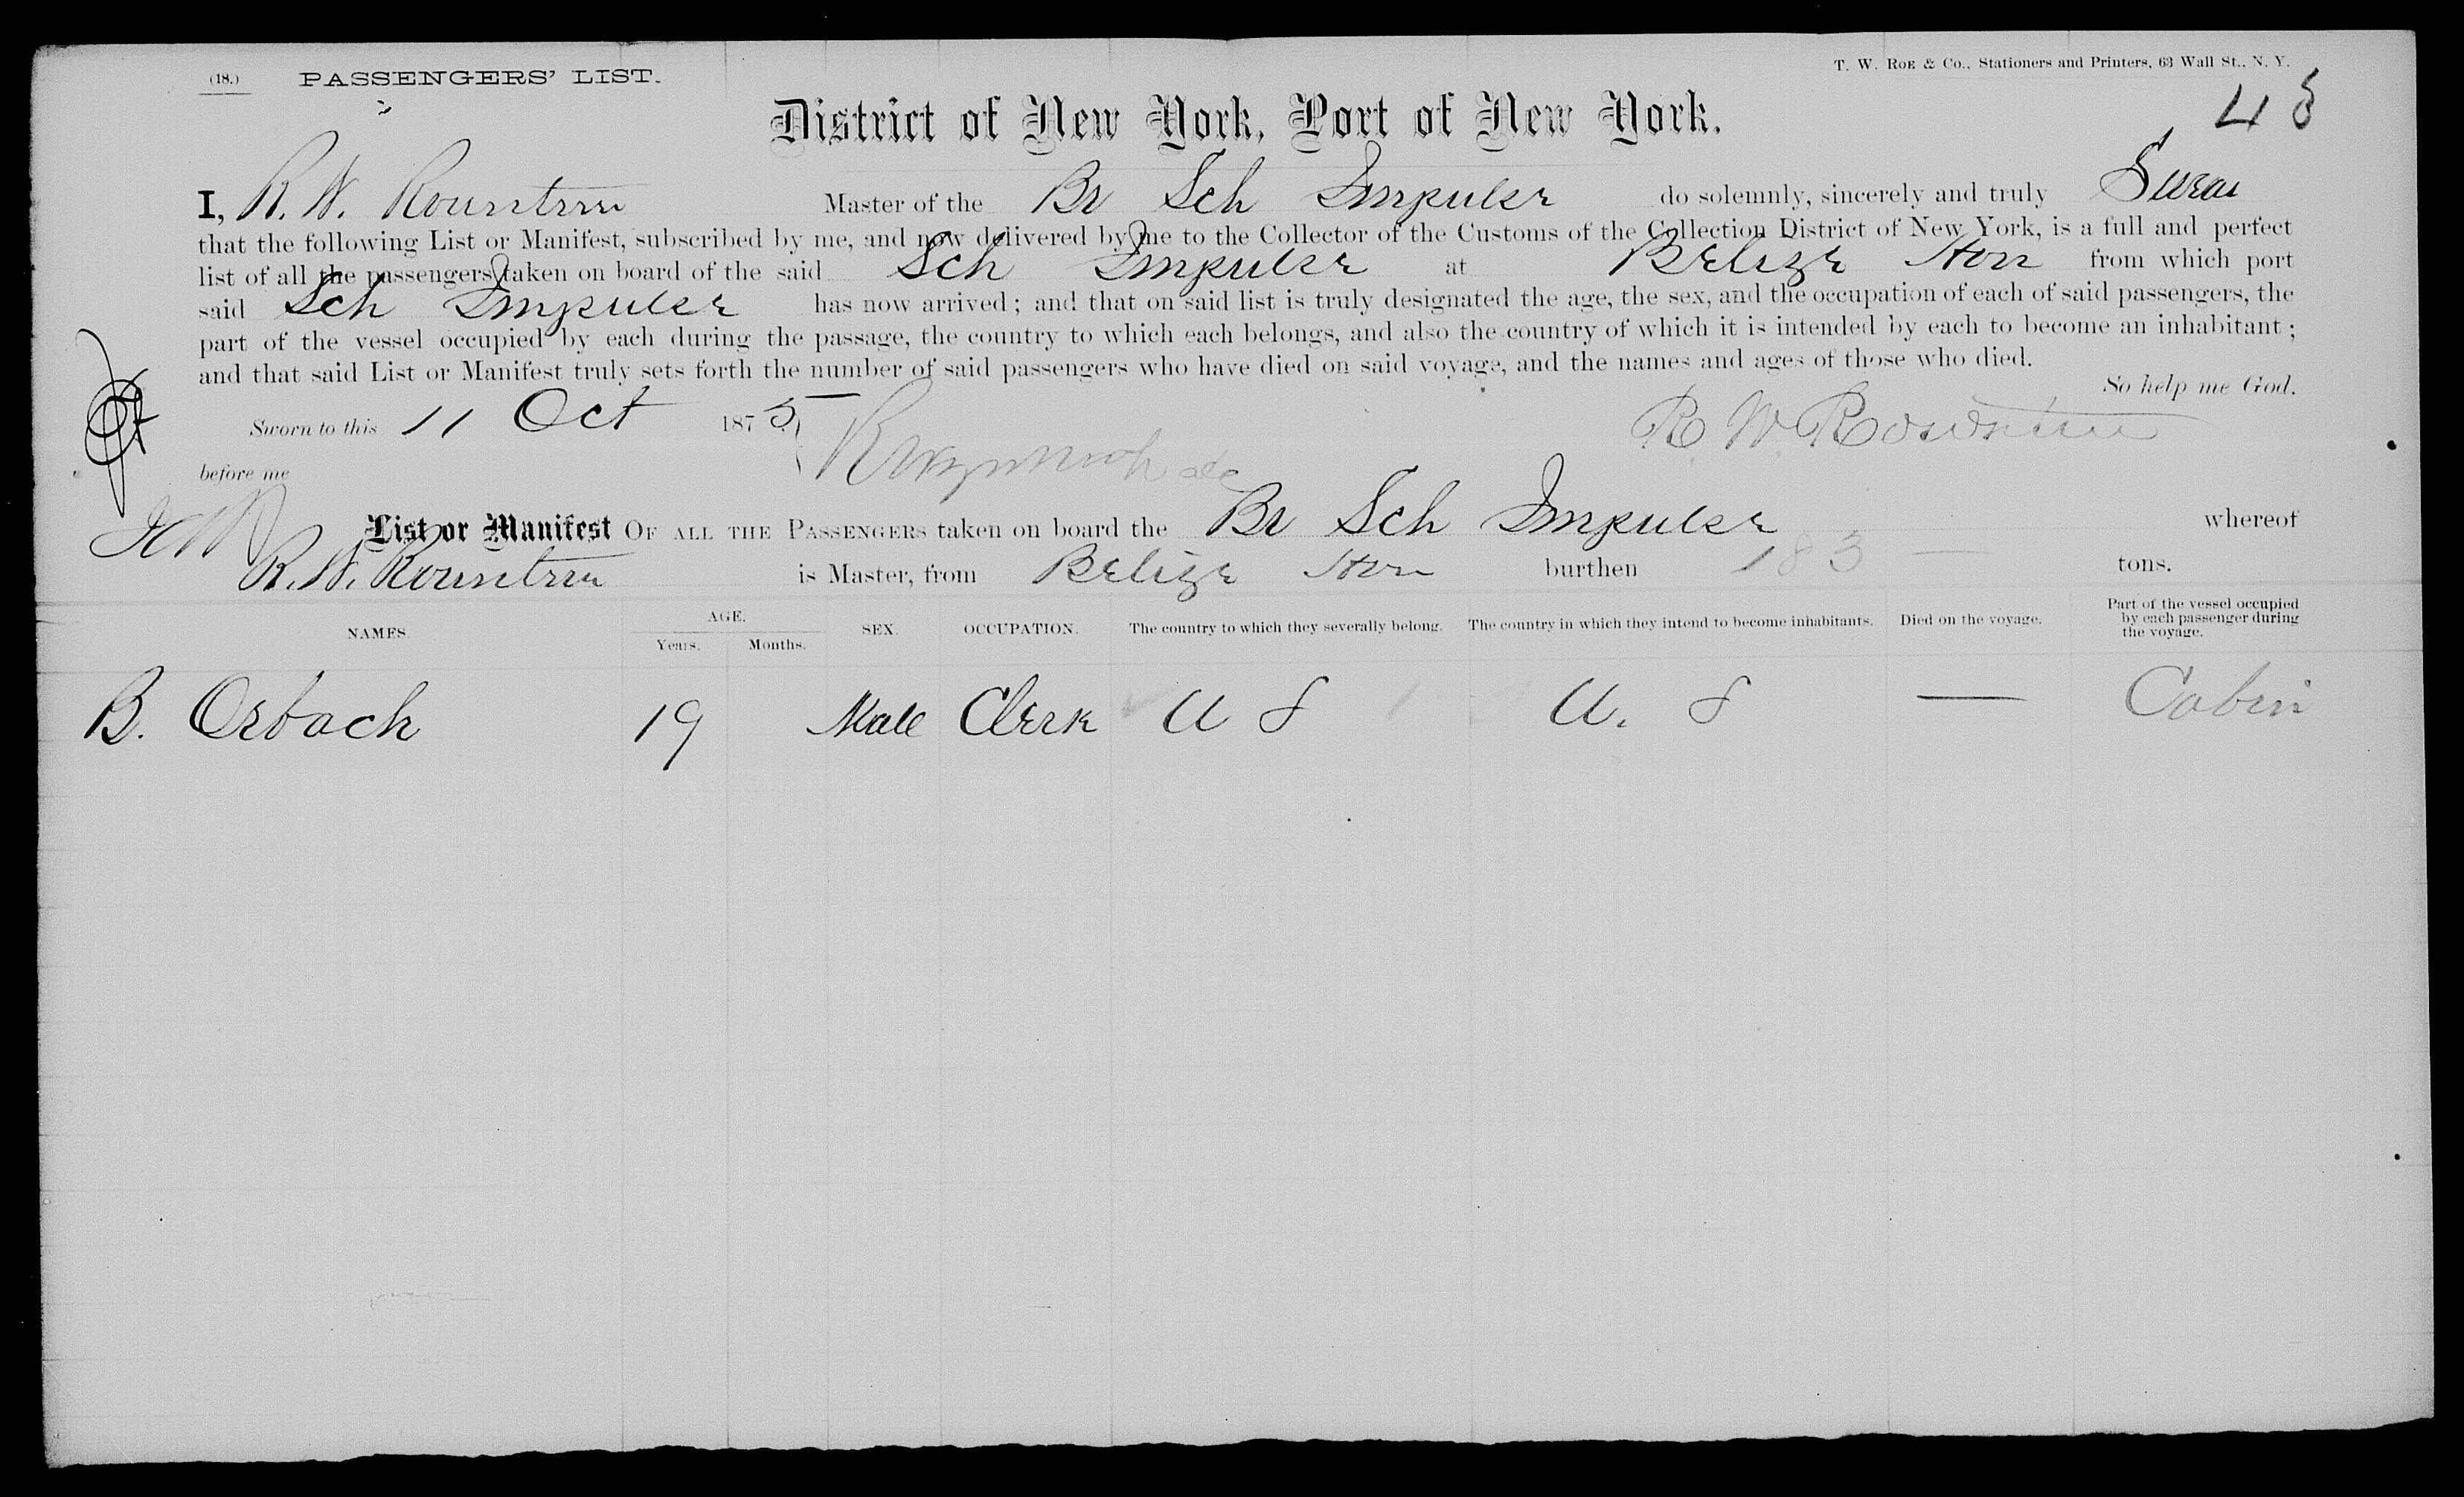 (18.) PASSENGERS' LIST. T. W. ROE & Co., Stationers and Printers, 63 Wall St., N. Y.
District of New York, Port of New York.
I, R. W. Rountree Master of the Br Sch Impulse do solemnly, sincerely and truly Swear
that the following List or Manifest, subscribed by me, and now delivered by me to the Collector of the Customs of the Collection District of New York, is a full and perfect
list of all the passengers taken on board of the said Sch Impulse at Belize Hon from which port
said Sch Impulse has now arrived; and that on said list is truly designated the age, the sex, and the occupation of each of said passengers, the
part of the vessel occupied by each during the passage, the country to which each belongs, and also the country of which it is intended by each to become an inhabitant;
and that said List or Manifest truly sets forth the number of said passengers who have died on said voyage, and the names and ages of those who died.
So help me God.
Sworn to this 11 Oct 1875 R W Rountree
before me
List or Manifest OF ALL THE PASSENGERS taken on board the Br Sch Impulse whereof
R. W. Rountree is Master, from Belize Hon burthen 183 tons.
NAMES. AGE. Years. Months. SEX. OCCUPATION. The country to which they severally belong. The country in which they intend to become inhabitants. Died on the voyage. Part of the vessel occupied by each passenger during the voyage.
B. Orbach 19 Male Clerk U S U. S — Cabin